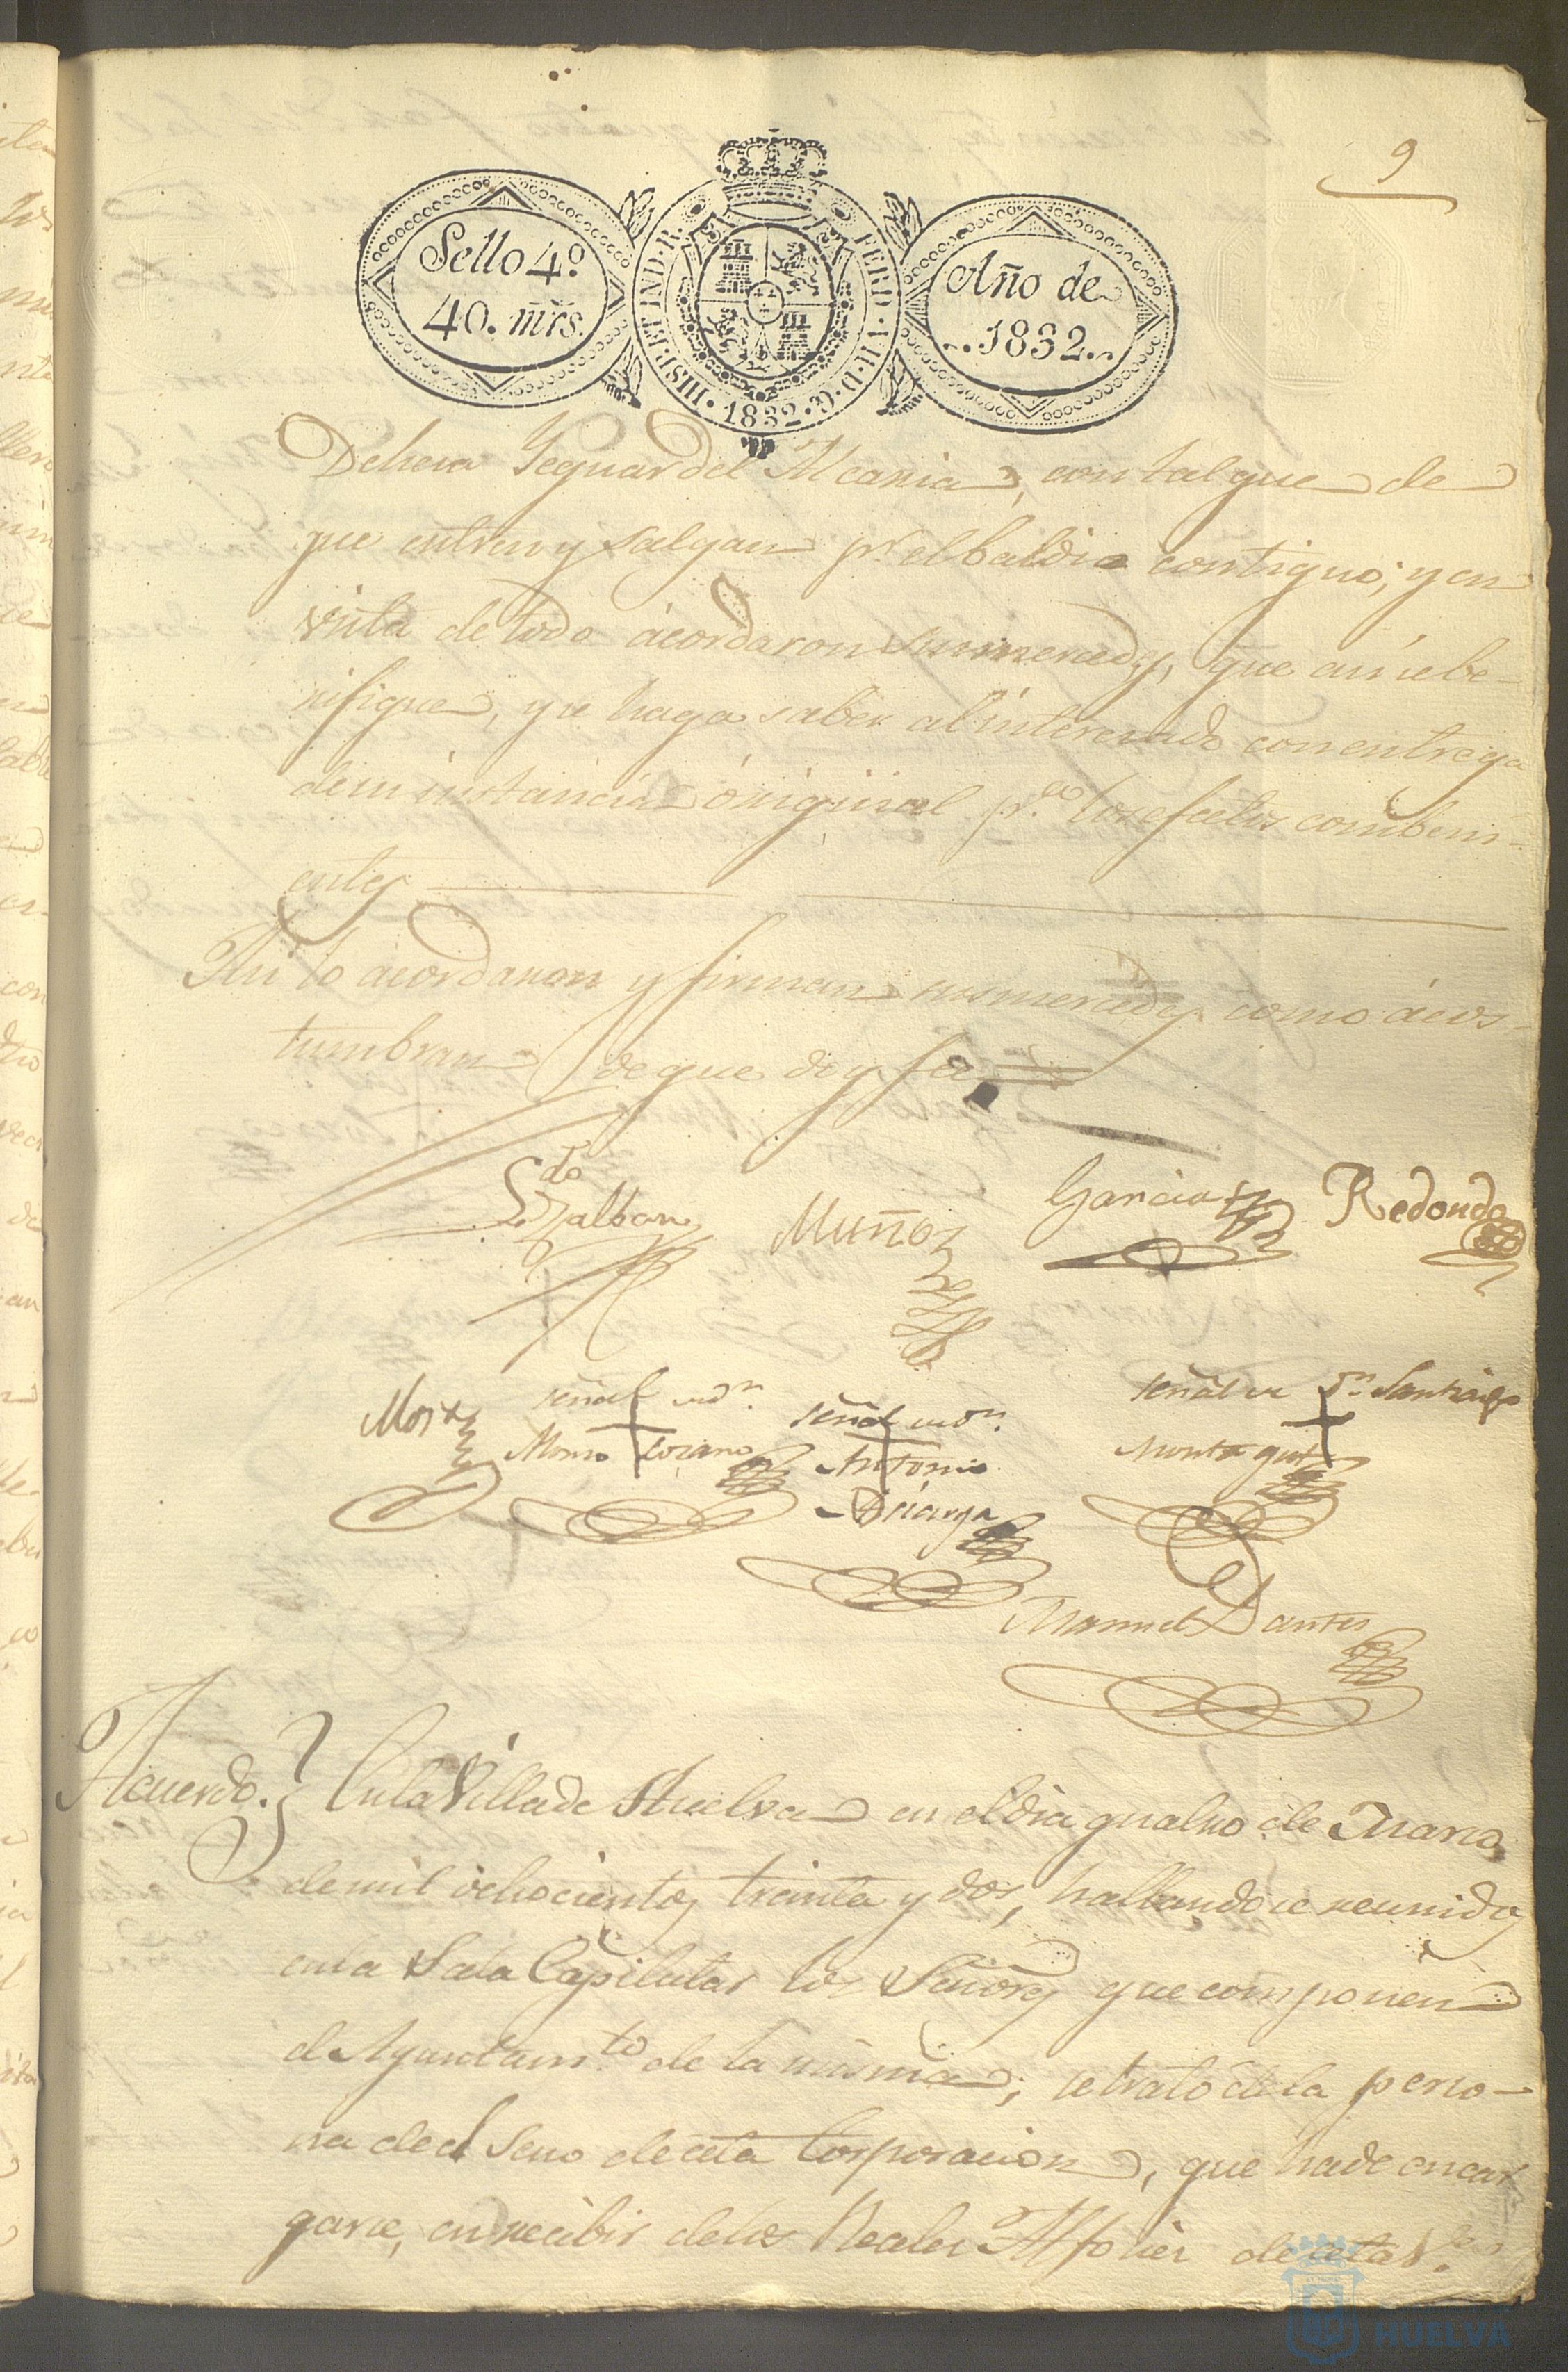 9
Sello 4º
40. mrs.
HISP. ET IND. R.
FERD. VII. D. G.
1832
Año de
1832.
Dehesa Yeguar del Alcaria, con tal que de
que entren y salgan pr. el baldio contiguo; y en
vista de todo acordaron sus mercedes, que asi se be-
rifique, y se haga saber al interesado con entrega
de su instancia original pa. los efectos combeni-
entes
Asi lo acordaron y firman sus mercedes como acos-
tumbran de que doy fe
Ldo Zalban
Muñoz
Garcia
Redondo
señal de Dn.
Señal de Dn.
señal de Dn. Santiago
Alonso Lozano
Antonio
Montagut
Manuel Dantes
Acuerdo. En la Villa de Huelva en el dia quatro de Marzo
de mil ochocientos treinta y dos, hallandose reunidos
en la Sala Capitular los Señores que componen
el Ayuntamto. de la misma; se trató de la perso-
na de el seno de esta Corporacion, que ha de encar
garse, en recibir de los Reales Alfolies de esta Va.
HUELVA